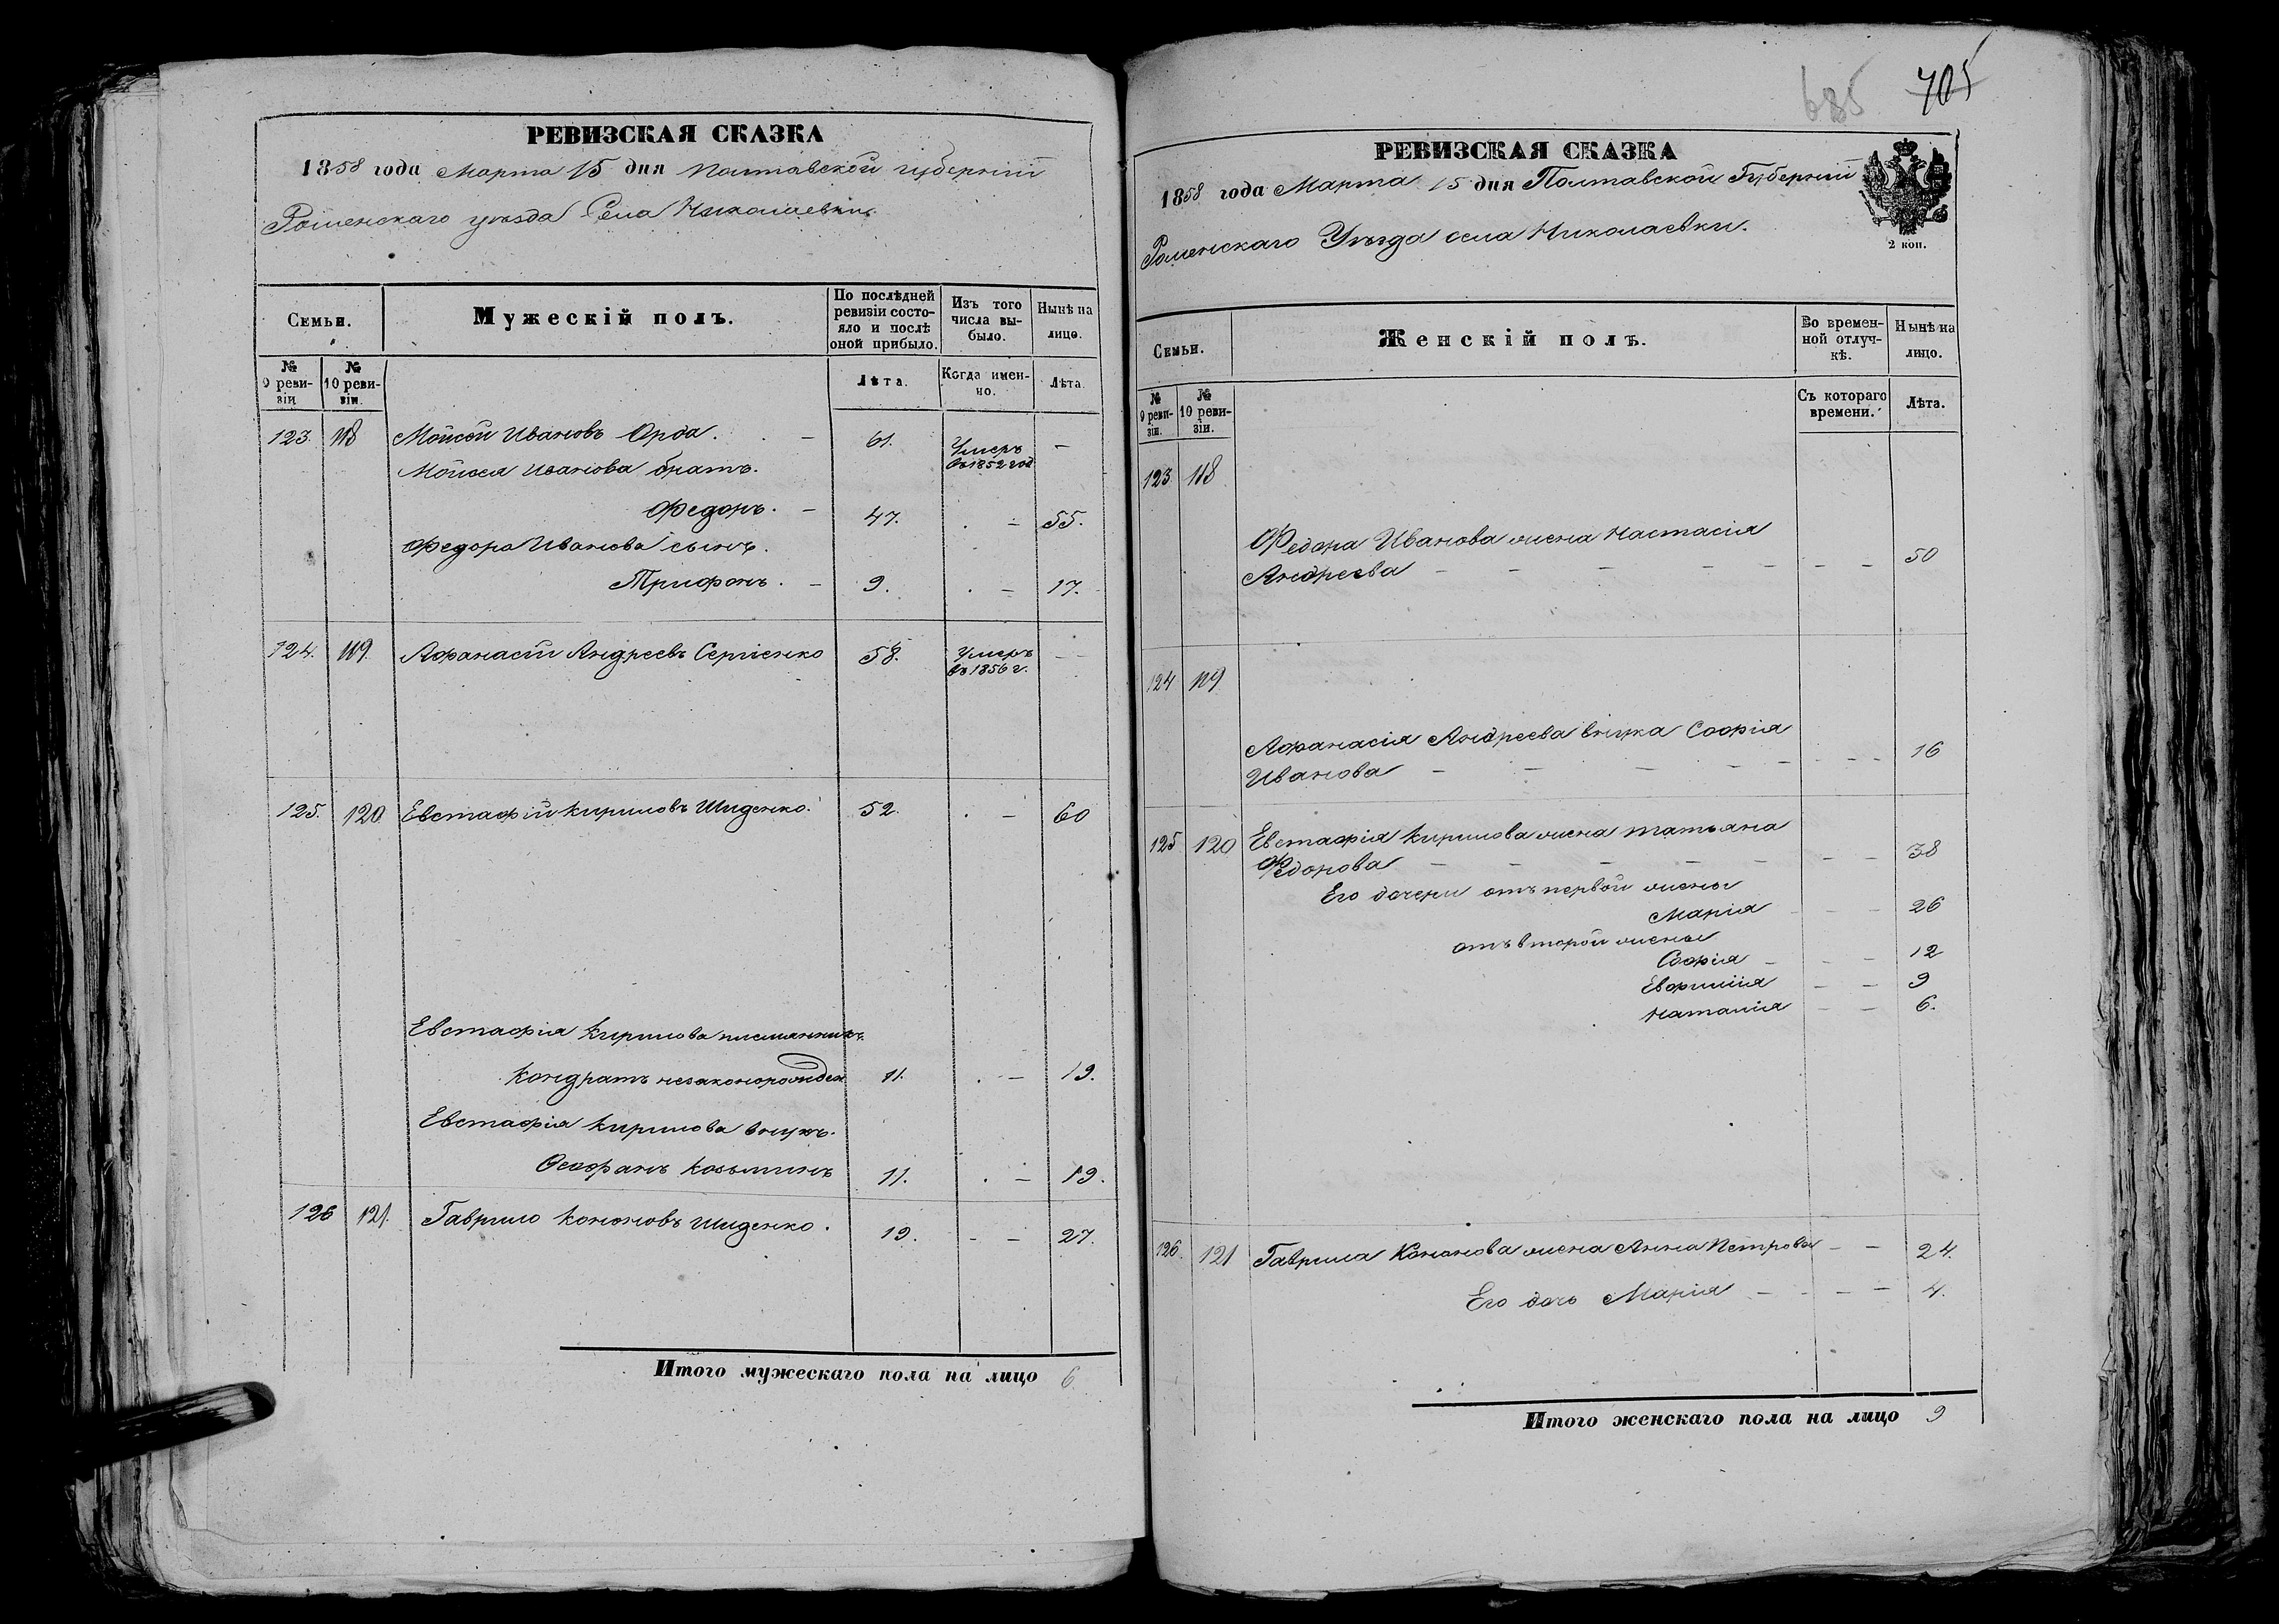 РЕВИЗСКАЯ СКАЗКА
1858 года Марта 15 дня Полтавской губерніи
Роменскаго уѣзда Села Николаевки.
Семьи.
Мужескій полъ.
По послѣдней ревизіи состояло и послѣ оной прибыло.
Изъ того числа выбыло.
Нынѣ на лицо.
№ 9 ревизіи
№ 10 ревизіи.
Лѣта.
Когда именно.
Лѣта.
123. 118 Мойсей Ивановъ Орда. – 61. Умеръ въ 1852 год –
Мойсея Иванова братъ.
Федоръ. – 47. . – 55.
Федора Иванова сынъ.
Трифонъ. – 9. . – 17.
124. 119. Афанасій Андреевъ Сергіенко 58. Умеръ въ 1856 г. –
125. 120 Евстафій Кириловъ Шиденко. 52. . – 60
Евстафія Кирилова племянникъ.
Кондратъ незаконорожден 11. . – 19.
Евстафія Кирилова внукъ.
Феофанъ Козьминъ 11. . – 19.
126 121. Гаврило Кононовъ Шиденко. 19. – – 27.
Итого мужескаго пола на лицо 6
685 705
РЕВИЗСКАЯ СКАЗКА
1858 года Марта 15 дня Полтавской Губерніи
Роменскаго Уѣзда села Николаевки.
2 коп.
Семьи.
Женскій полъ.
Во временной отлучкѣ.
Нынѣ на лицо.
№ 9 ревизіи.
№ 10 ревизіи.
Съ котораго времени.
Лѣта.
123 118
Федора Иванова жена Настасія
Андреева – – – – – – – 50
124 119
Афанасія Андреева внука Софія
Иванова – – – – – – – – 16
125 120 Евстафія Кирилова жена Татьяна
Федорова – – – – – – – 38
Его дочери отъ первой жены
Марія – – – 26
отъ второй жены
Софія – – – 12
Евфимія – – 9
Наталія – – 6.
126. 121 Гаврила Кононова жена Анна Петрова – – 24.
Его дочь Марія – – – – 4.
Итого женскаго пола на лицо 9